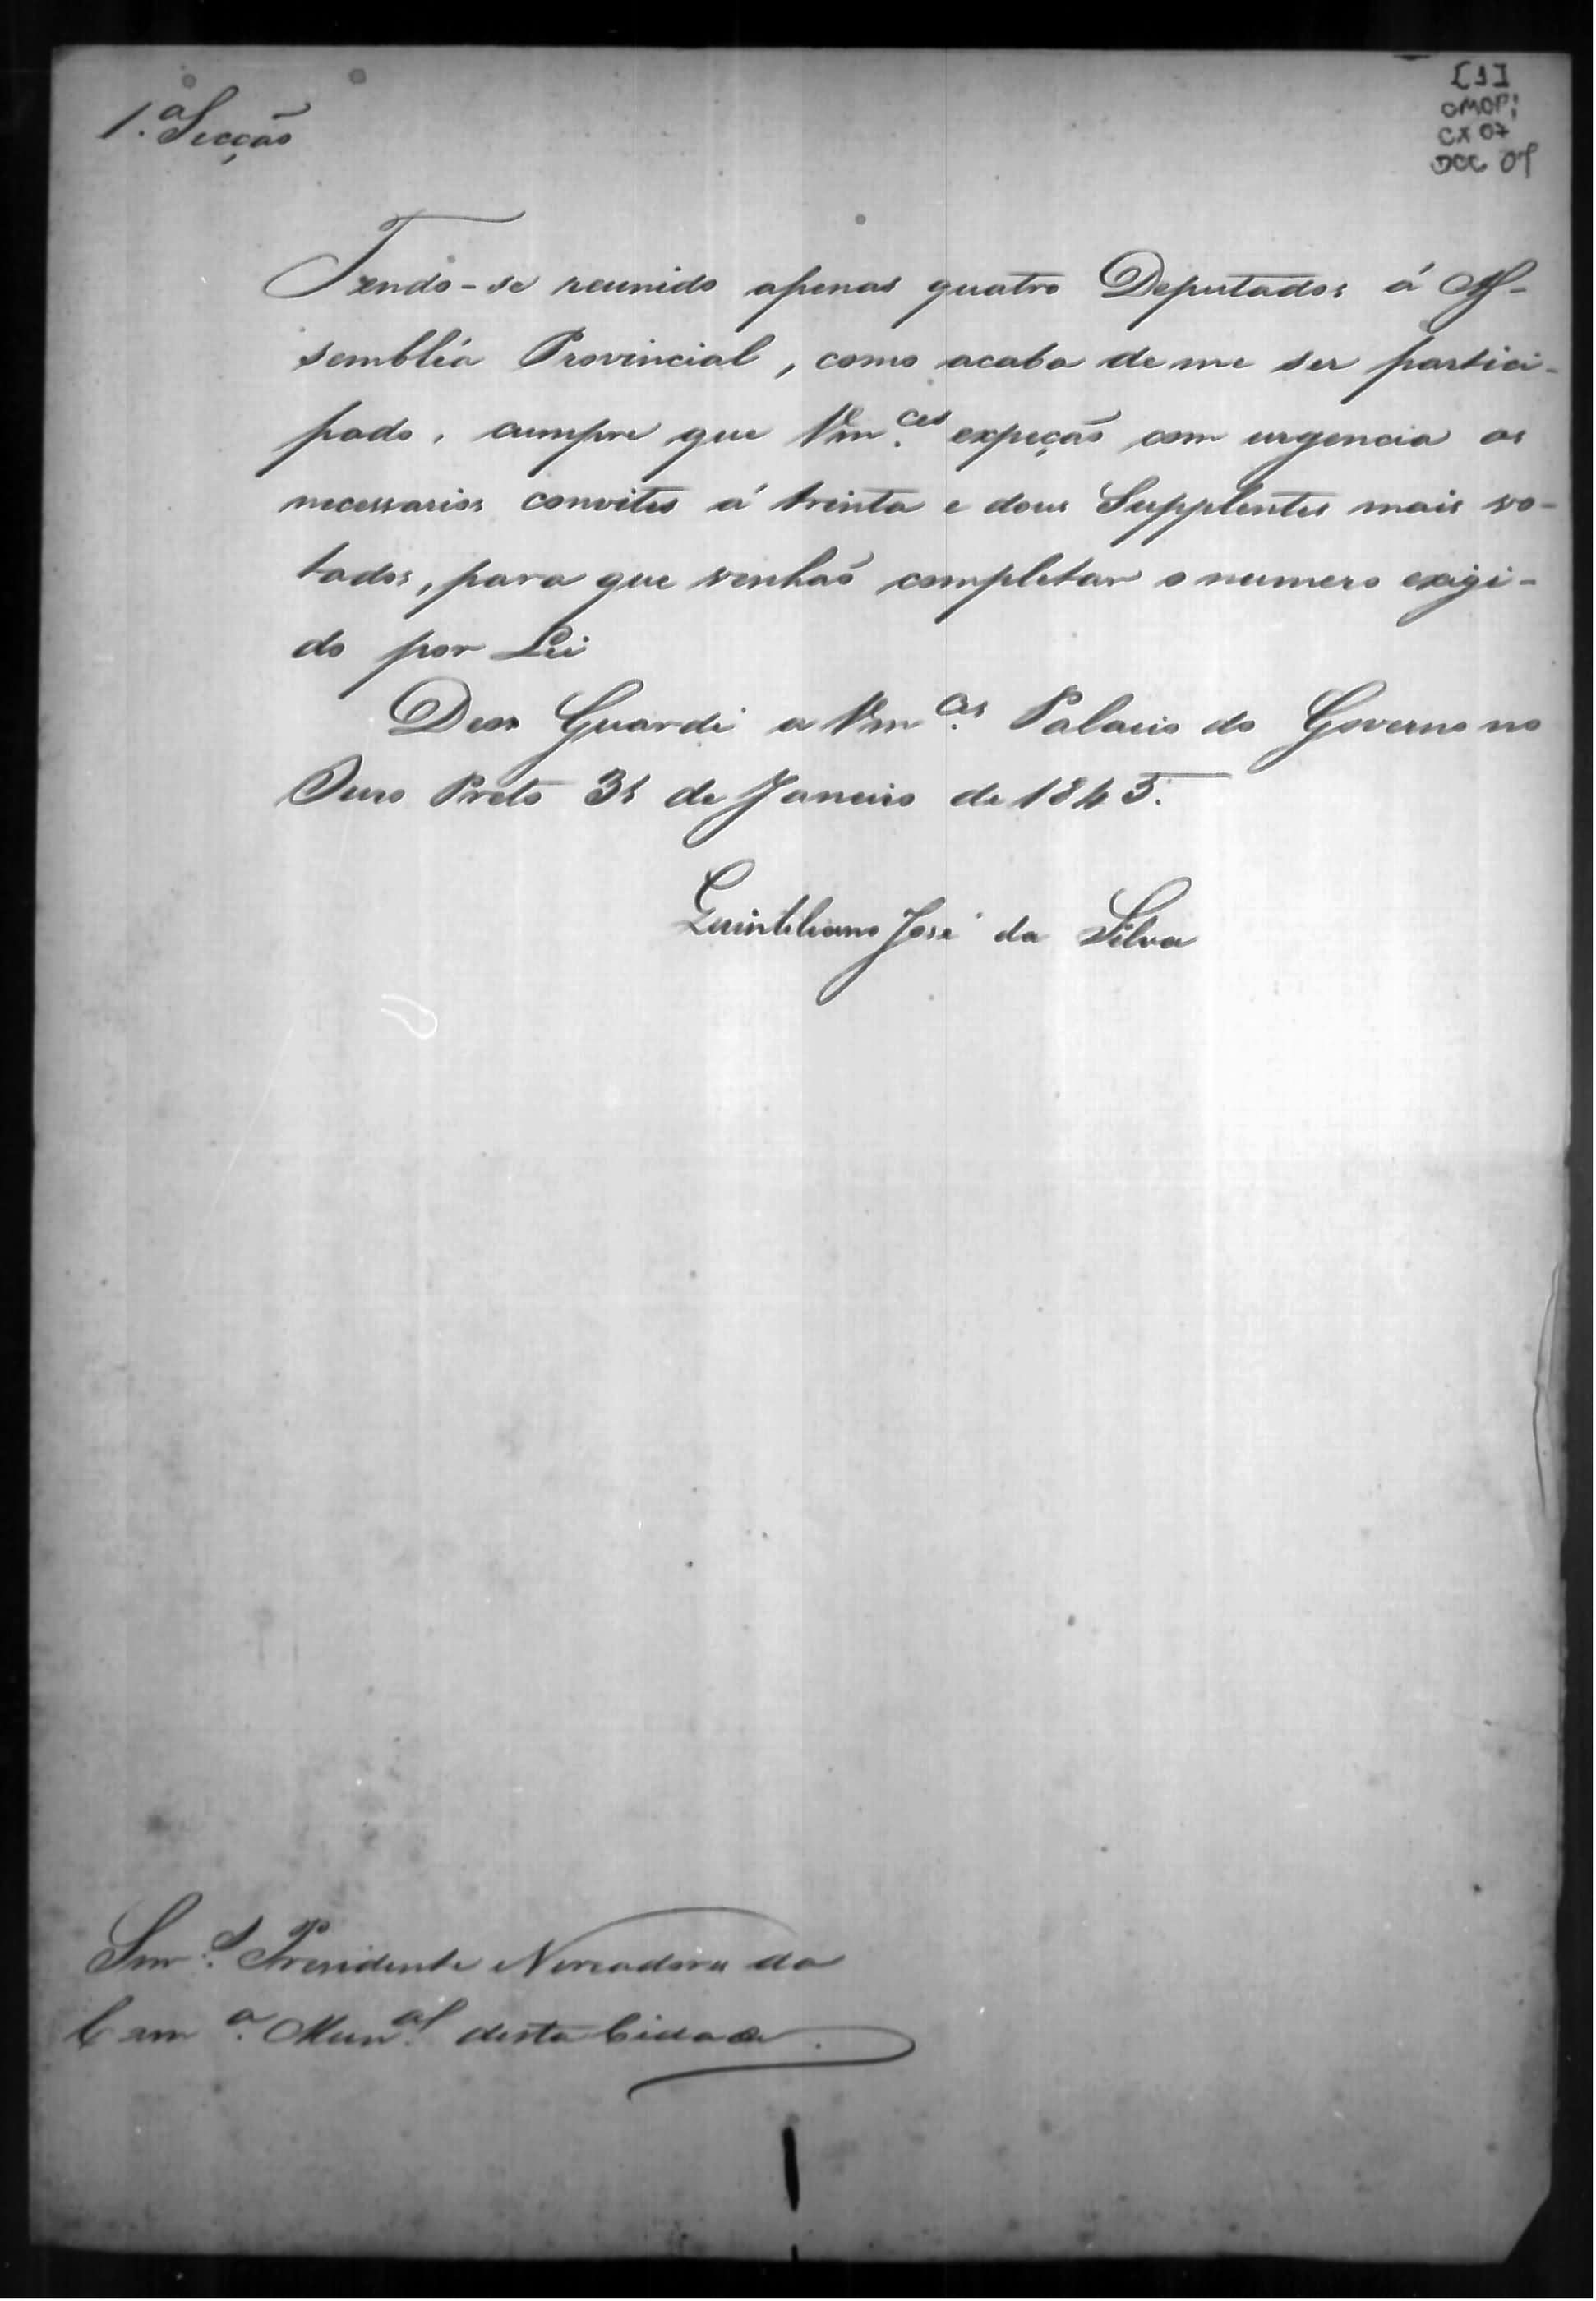 1.ª Secção
[1]
CMOP;
CX 07
DOC 01
Tendo-se reunido apenas quatro Deputados á As-
sembléa Provincial, como acaba de me ser partici-
pado, cumpre que Vm.ces expeção com urgencia os
necessarios convites á trinta e dous Supplentes mais vo-
tados, para que venhão completar o numero exigi-
do por Lei
Deos Guarde a Vm.ces Palacio do Governo no
Ouro Preto 31 de Janeiro de 1845.
Quintiliano José da Silva
Snr.s Presidente e Vereadores da
Cam.a Mun.al desta Cidade.